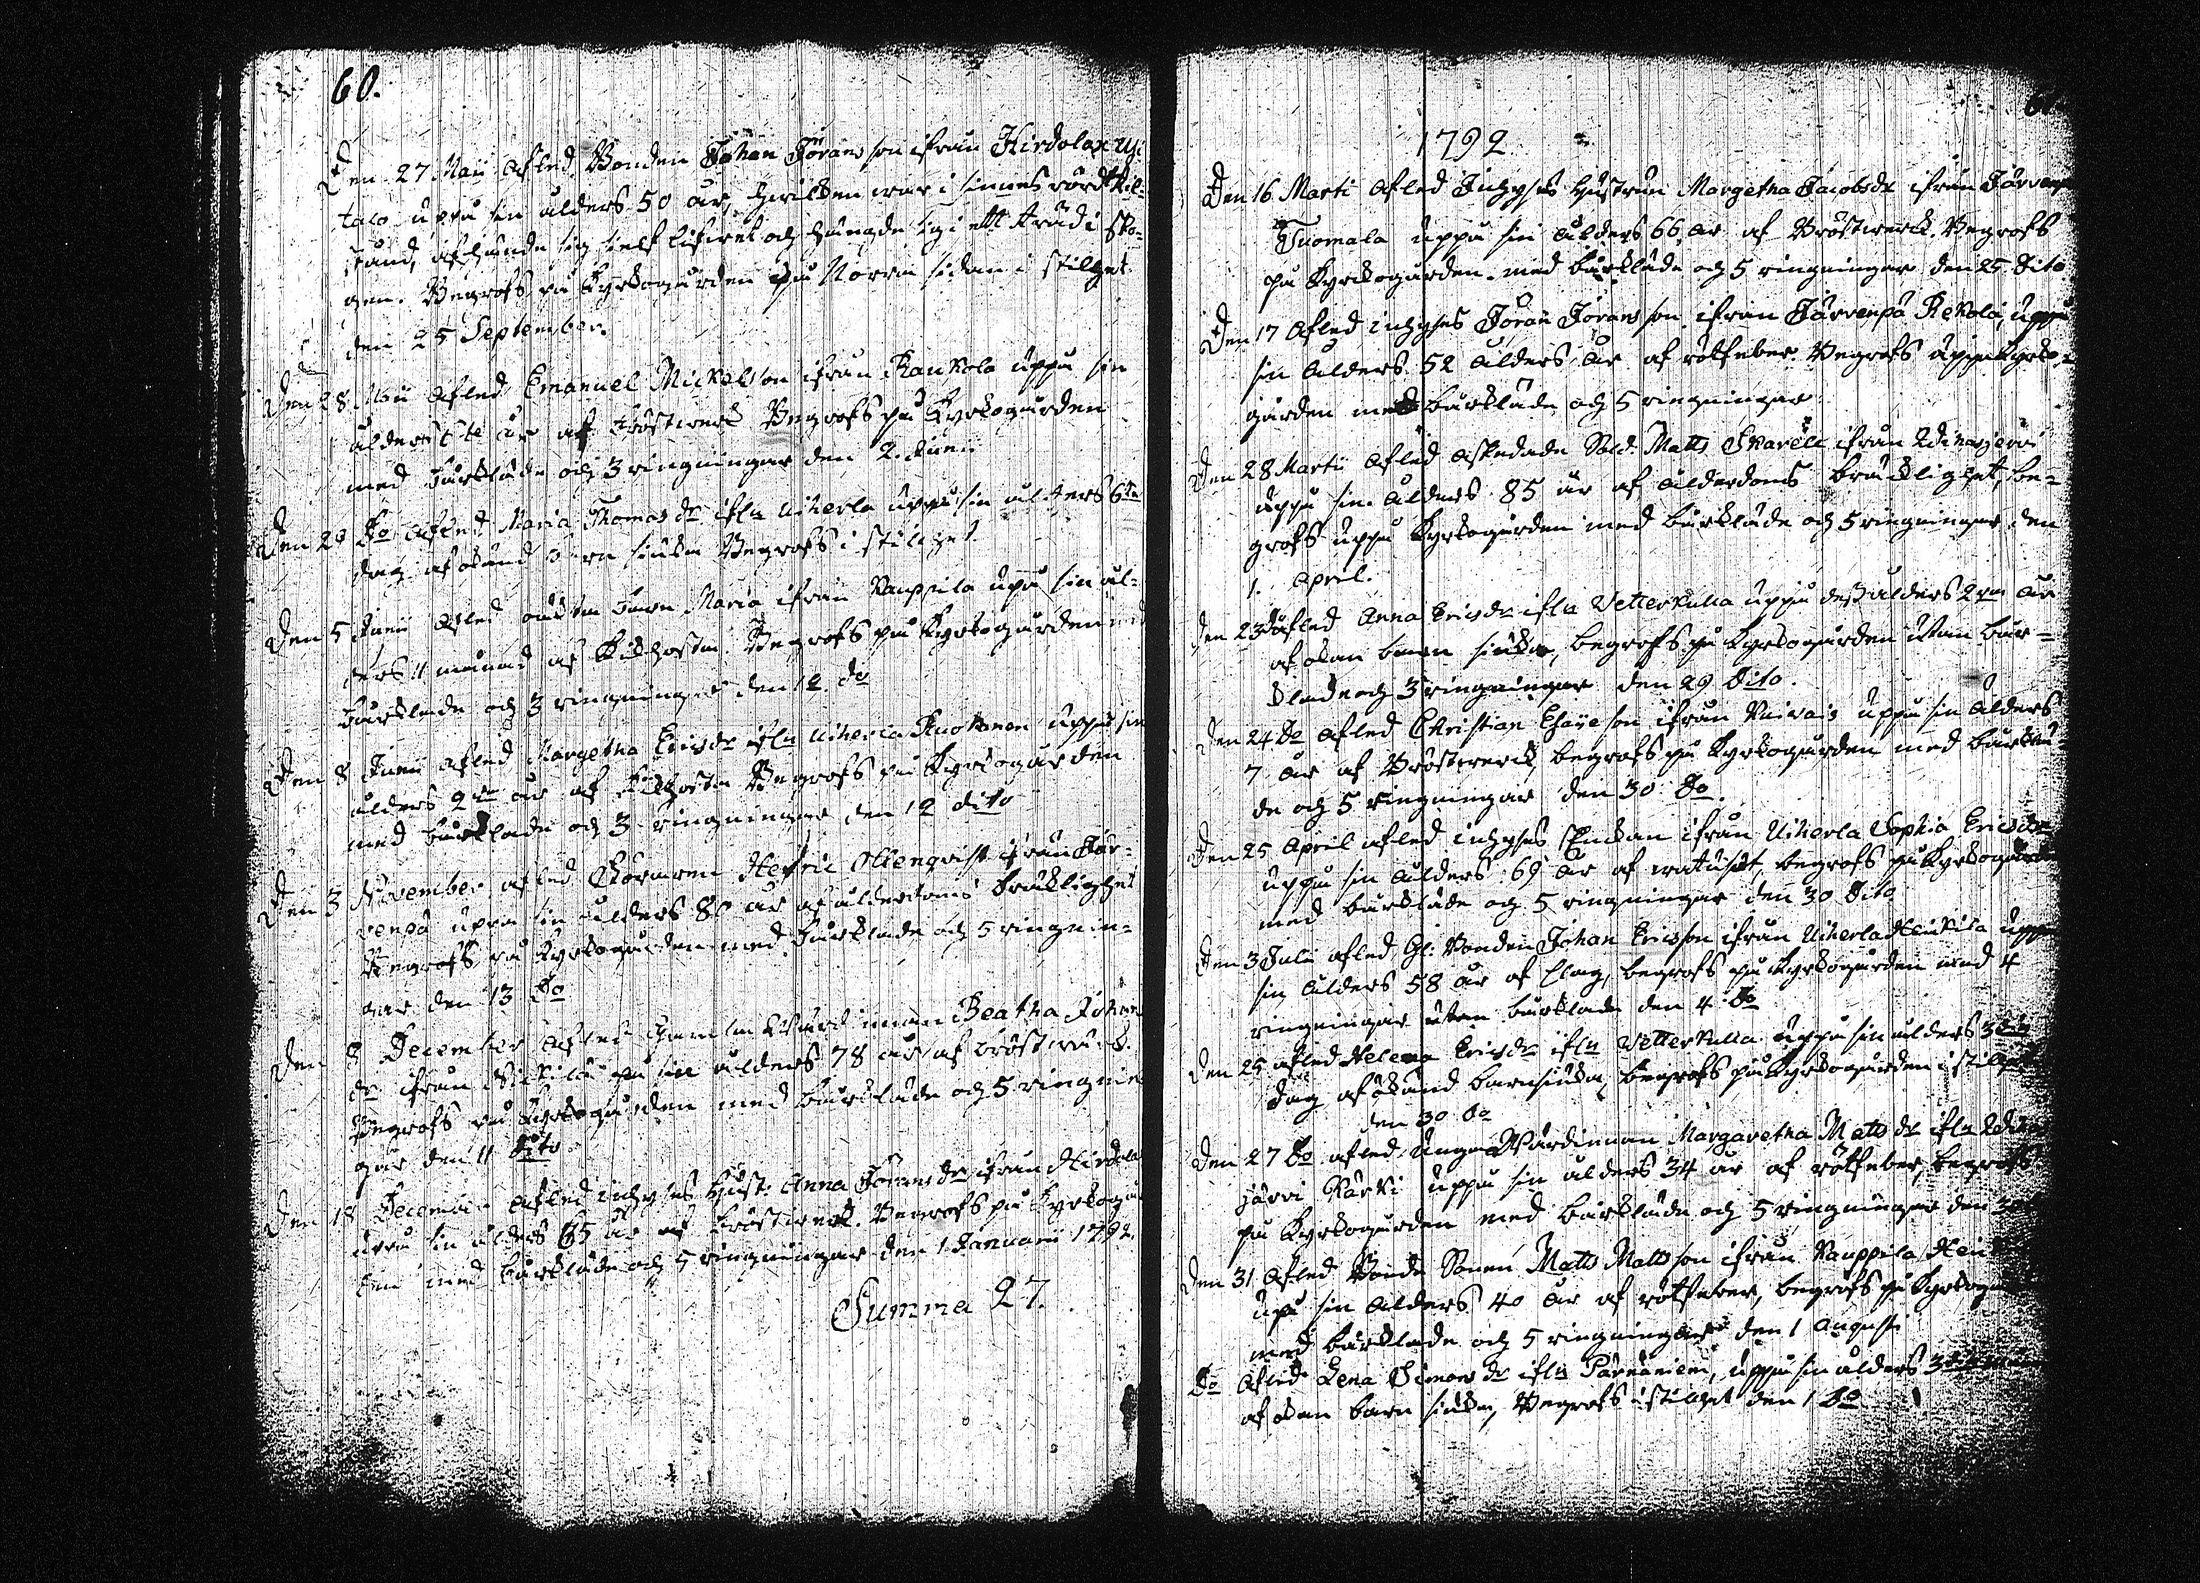 60.
Den 27 Maii Afled Bonden Johan Jöransson ifrån Hirdolax Uti
talo uppå sin ålders 50 år, hwilken war i sinnes rördt til-
stånd, afhände sig sielf lifwet och hängde sig i ett träd i sko-
gen. Begrofs på Kyrkogården på Norra sidan i stilhet
den 25 September.
Den 28 Maii Afled Emanuel Mickelsson ifrån Kaukola uppå sin
ålders år af bröstwerk Begrofs på Kyrkogården
med bårkläde och 3 ringningar den 2. Junii
Den 29 Do Afled Maria Thomasdr ifrn Uiherla uppå sin ålders 6te
dag af okänd barn siuka Begrofs i stilhet
Den 5 Junii Afled barn Maria ifrån Kauppila uppå sin ål-
ders 11 månad af Kikhosta. Begrofs på Kyrkogården med
bårkläde och 3 ringningar den 12. do
Den 8 Junii afled Margetha Ericsdr ifrn Uiherla Ruokonen uppå sin
ålders 2dra år af Kikhosta Begrofs på Kyrkogården
med bårkläde och 3 ringningar den 12 dito
Den 3 November afled Henric Ollenqvist ifrån Jär-
venpä uppå sin ålders 80 år af ålderdoms bräcklighet
Begrofs på Kyrkogården med bårkläde och 5 ringnin-
gar den 13 Do
Den 3 December Afled Gamla Wärdinnan Beatha Johans
dr ifrån Nickilä på sin ålders 78 år af bröstwärk.
Begrofs på Kyrkogården med bårkläde och 5 ringnin
gar den 11 Dito
Den 18 December Afled inhyses Hust: Anna Jöransdr ifrån Hirdola
uppå sin ålders 65 år af bröstwerk. Begrofs på Kyrkogår
den med bårkläde och 5 ringningar den 1 Januarii 1792.
Summa 27.
1792
Den 16 Marti Afled Inhyses Hustrun Margetha Jacobsdr ifrån Järvenp
Tuomala uppå sin ålders 66 år af Bröstwerck. Begrofs
på Kyrkogården med bårkläde och 5 ringningar den 25 Dito
Den 17 Afled inhyses Jöran Jöransson ifrån Järvenpä Rekola, uppå
sin ålders 52 ålders år af rötfeber. Begrofs uppå Kyrko-
gården med bårkläde och 5 ringningar
Den 28 Martii Afled Afskedade Sold. Matts Skarell ifrån
uppå sin ålders 85 år af ålderdoms bräcklighet, be-
grofs uppå Kyrkogården med bårkläde och 5 ringningar den
1. April.
Den 23 Do afled Anna Ericsdr ifrn Vetterkulla uppå deß ålders 2ra år
af okän barn siuka, begrofs på Kyrkogården utan bår-
kläde och 3 ringningar den 29 Dito.
Den 24 Do Afled Christian Esaije son ifrån uppå sin ålders
7 år af Bröstwerck, begrofs på Kyrkogården med bårklä-
de och 5 ringningar den 30 Do.
Den 25 April afled inhyses Enckan ifrån Uiherla Sophia Ericsdr
uppå sin ålders 69 år af watusot, begrofs på Kyrkogården
med bårkläde och 5 ringningar den 30 Dito
Den 3 Julii afled Gl: Bonden Johan Ericsson ifrån Uiherla Heikilä uppå
sin ålders 58 år af slag, begrofs på Kyrkogården med 4
ringningar utan bårkläde den 4 Do
Den 25 afled Helena Ericsdr ifrn Vetterkulla uppå sin ålders 3die
dag af okänd barnsiuka, begrofs på Kyrkogården i stilhet
den 30 Do
Den 27 Do afled Unga Wärdinnan Margaretha Mattsdr ifrn
järvi Kärki uppå sin ålders 34 år af rötfeber, begrofs
på Kyrkogården med bårkläde och 5 ringningar den 30
Den 31 Afled Bonde Sonen Matts Mattsson ifrån Kauppila Hei
upå sin ålders 40 år af rötfeber, begrofs på Kyrkogår
med bårkläde och 5 ringningar den 1 Augusti
Do Afled Lena Simonsdr ifrn Pärnäniemi, uppå sin ålders
af okän barn siuka, Begrofs i stilhet den 1 Do